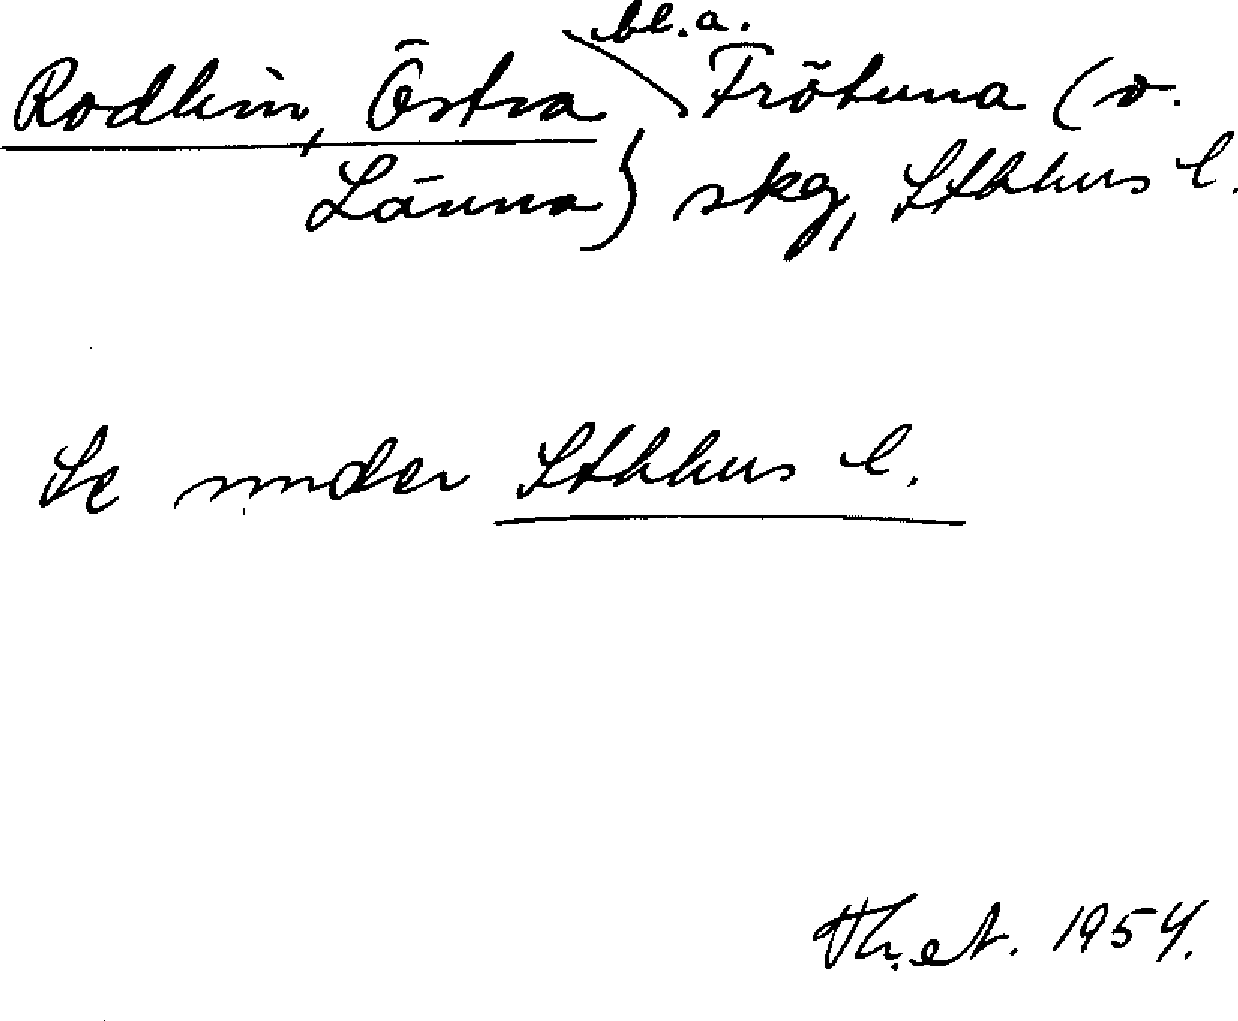 bl.a.
Rodlin, Östra Frötuna (o.
Länna) skg, Sthlms l.
Se under Sthlms l.
1954.